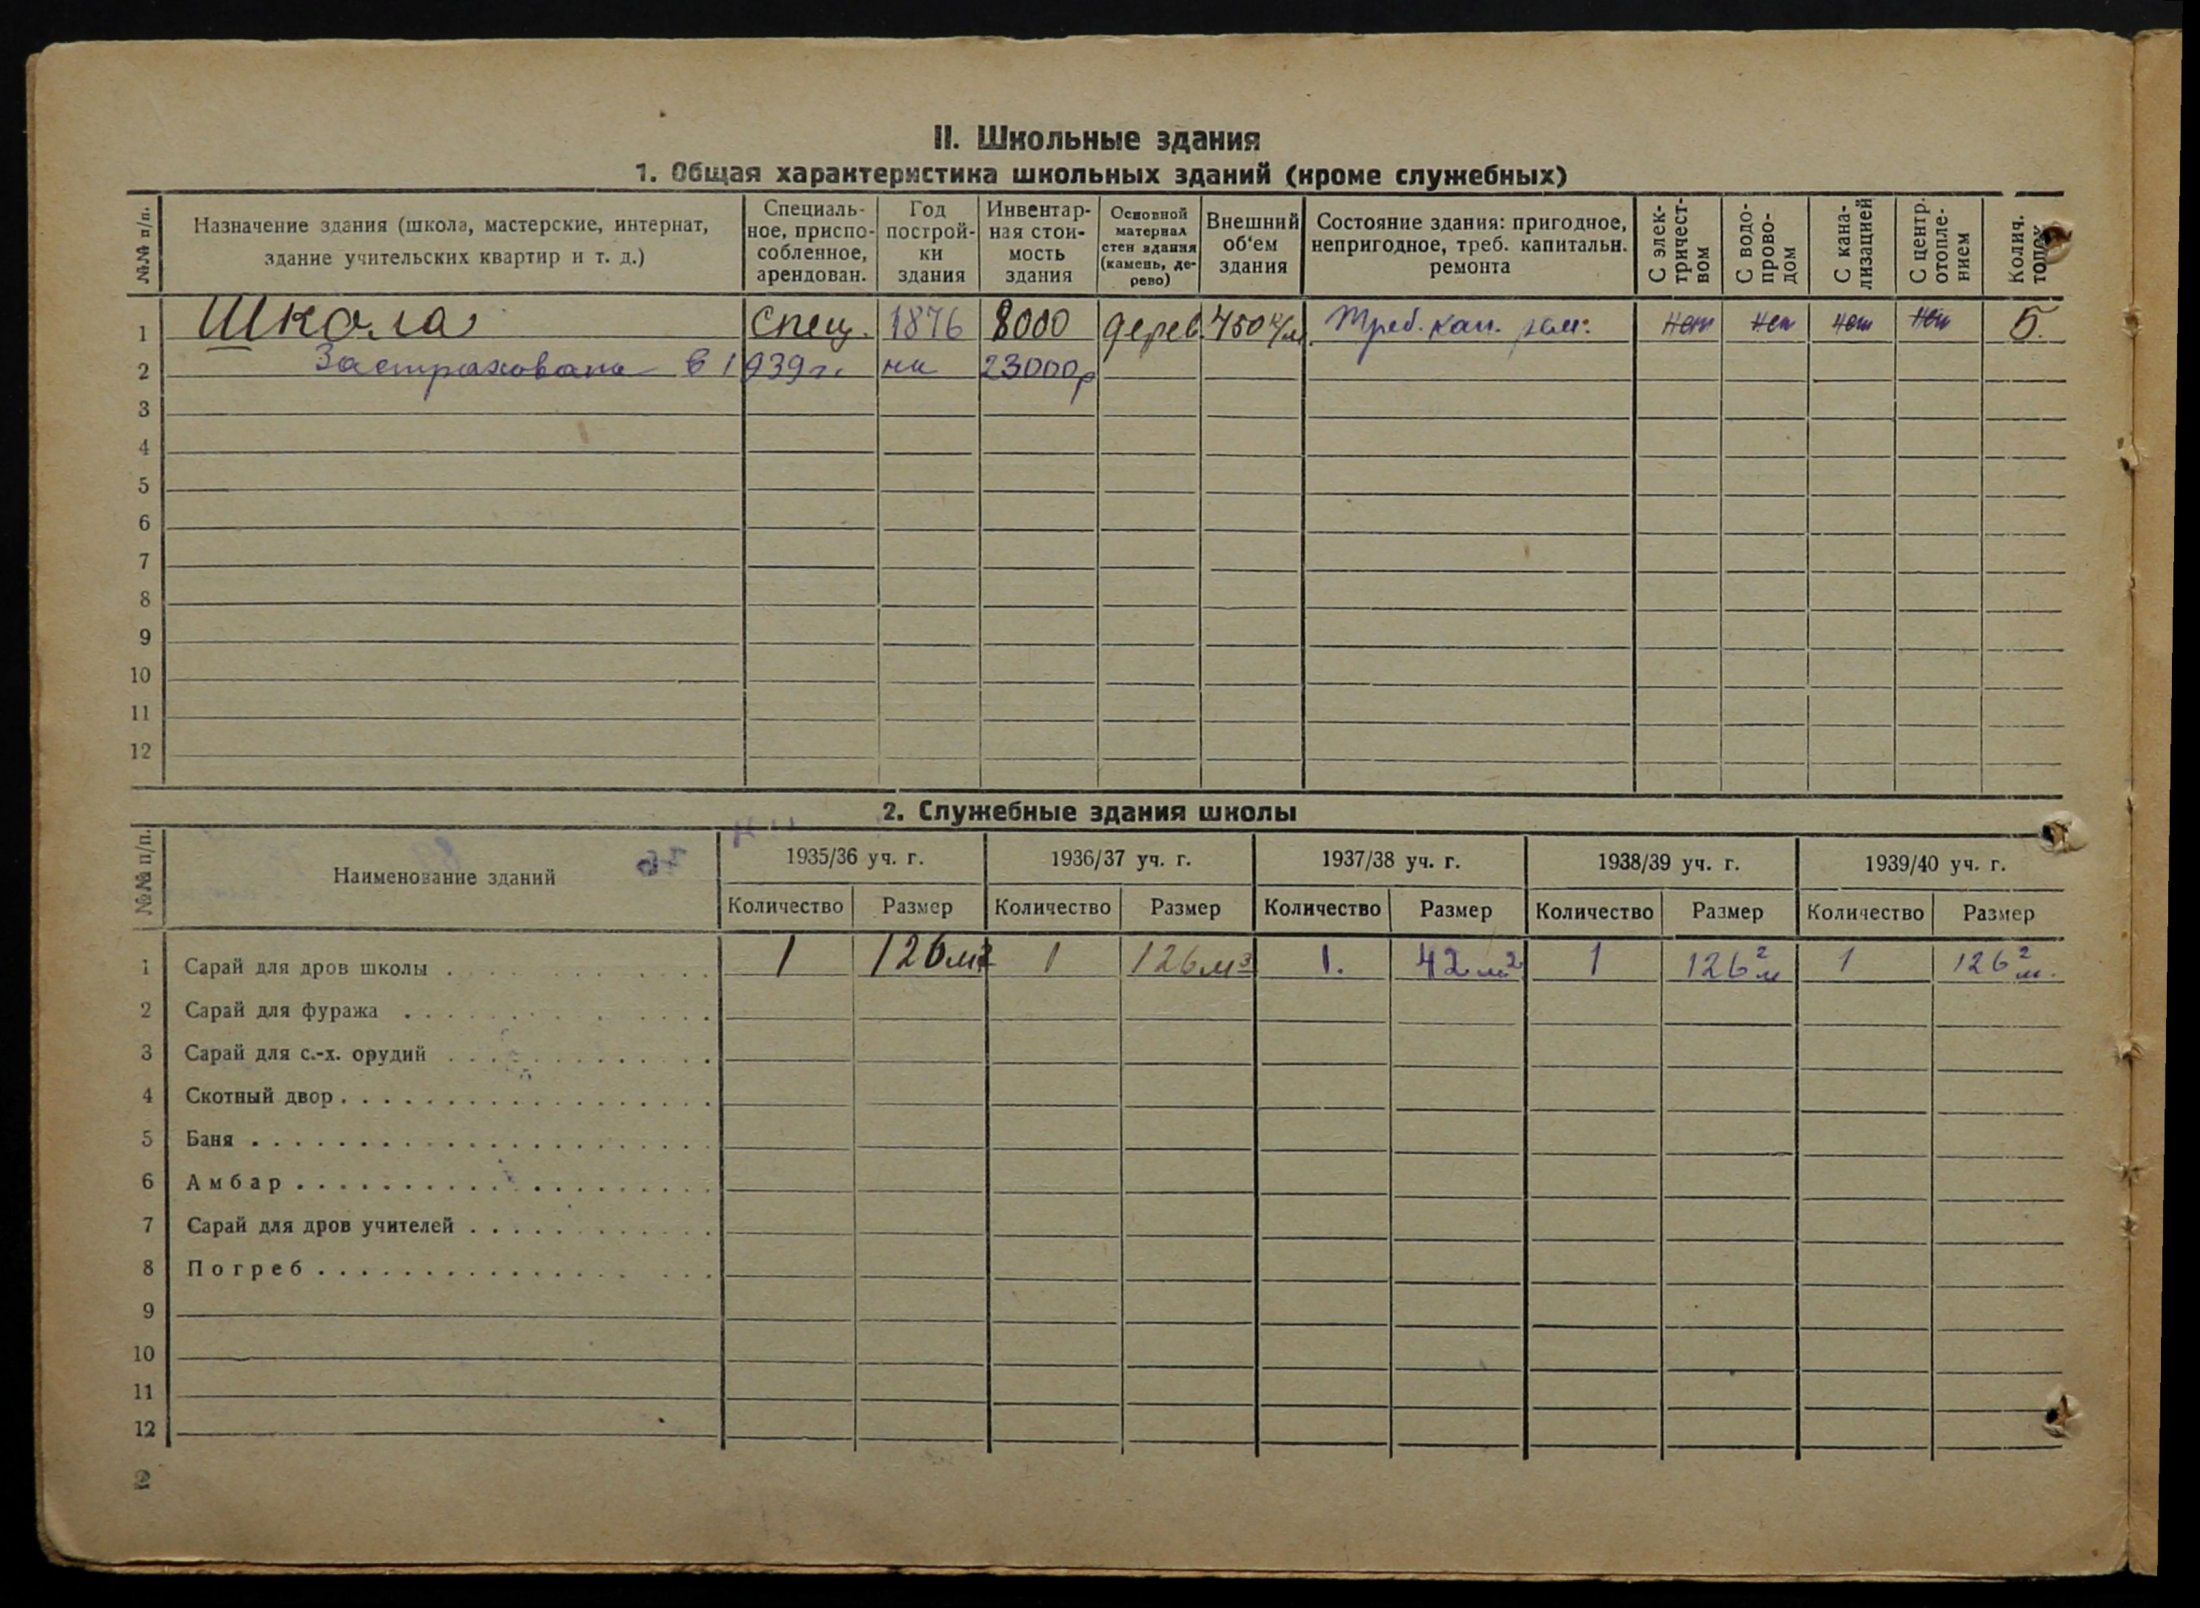 II. Школьные здания
1. Общая характеристика школьных зданий (кроме служебных)
№№ п/п.
Назначение здания (школа, мастерские, интернат,
здание учительских квартир и т. д.)
Специаль-
ное, приспо-
собленное,
арендован.
Год
построй-
ки
здания
Инвентар-
ная стои-
мость
здания
Основной
материал
стен здания
(камень, де-
рево)
Внешний
об'ем
здания
Состояние здания: пригодное,
непригодное, треб. капитальн.
ремонта
С элек-
тричест-
вом
С водо-
прово-
дом
С кана-
лизацией
С центр.
отопле-
нием
Колич.
топок
1 Школа Спец. 1876 8000 дерев. 450 Треб. кап. рем. нет нет нет нет 5.
2 Застрахована в 1939 г. на 23000р
3
4
5
6
7
8
9
10
11
12
2. Служебные здания школы
№№ п/п.
Наименование зданий
1935/36 уч. г. 1936/37 уч. г. 1937/38 уч. г. 1938/39 уч. г. 1939/40 уч. г.
Количество Размер Количество Размер Количество Размер Количество Размер Количество Размер
1 Сарай для дров школы 1 126 м² 1 126 м³ 1. 42 м² 1 126 м² 1 126 м².
2 Сарай для фуража
3 Сарай для с.-х. орудий
4 Скотный двор
5 Баня
6 Амбар
7 Сарай для дров учителей
8 Погреб
9
10
11
12
2